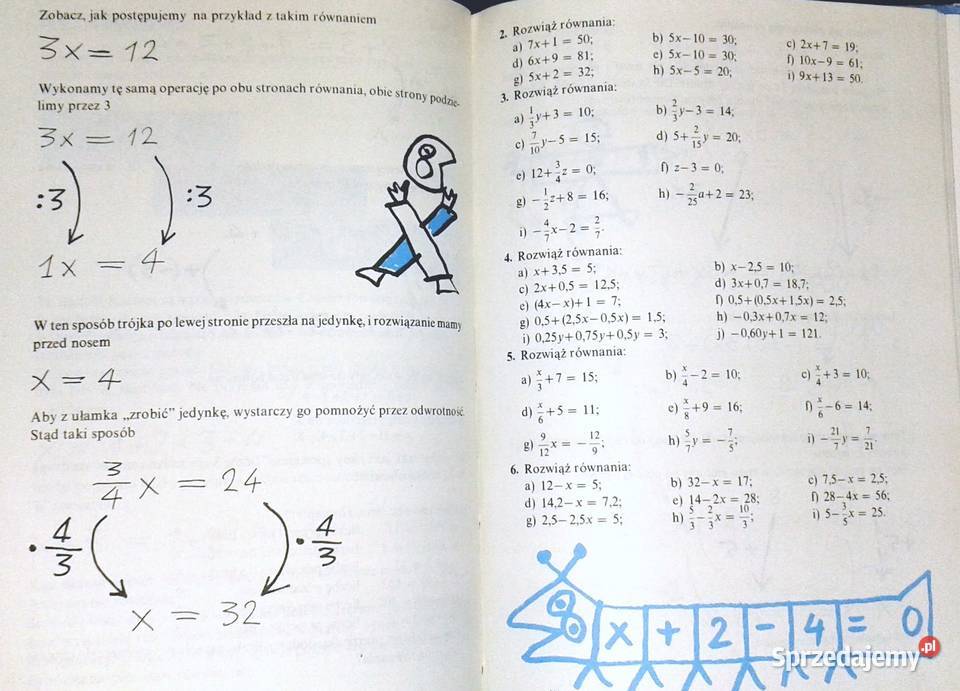 Zobacz, jak postępujemy na przykład z takim równaniem
3x = 12
Wykonamy tę samą operację po obu stronach równania, obie strony podzie-
limy przez 3
3x = 12
:3 :3
1x = 4
W ten sposób trójka po lewej stronie przeszła na jedynkę, i rozwiązanie mamy
przed nosem
x = 4
Aby z ułamka „zrobić” jedynkę, wystarczy go pomnożyć przez odwrotność.
Stąd taki sposób
3/4 x = 24
· 4/3 · 4/3
x = 32
2. Rozwiąż równania:
a) 7x+1 = 50; b) 5x−10 = 30; c) 2x+7 = 19;
d) 6x+9 = 81; e) 5x−10 = 30; f) 10x−9 = 61;
g) 5x+2 = 32; h) 5x−5 = 20; i) 9x+13 = 50.
3. Rozwiąż równania:
a) 1/3 y+3 = 10; b) 2/3 y−3 = 14;
c) 7/10 y−5 = 15; d) 5+2/15 y = 20;
e) 12+3/4 z = 0; f) z−3 = 0;
g) −1/2 z+8 = 16; h) −2/25 a+2 = 23;
i) −4/7 x−2 = 2/7.
4. Rozwiąż równania:
a) x+3,5 = 5; b) x−2,5 = 10;
c) 2x+0,5 = 12,5; d) 3x+0,7 = 18,7;
e) (4x−x)+1 = 7; f) 0,5+(0,5x+1,5x) = 2,5;
g) 0,5+(2,5x−0,5x) = 1,5; h) −0,3x+0,7x = 12;
i) 0,25y+0,75y+0,5y = 3; j) −0,60y+1 = 121.
5. Rozwiąż równania:
a) x/3+7 = 15; b) x/4−2 = 10; c) x/4+3 = 10;
d) x/6+5 = 11; e) x/8+9 = 16; f) x/6−6 = 14;
g) 9/12 x = −12/9; h) 5/7 y = −7/5; i) −21/7 y = 7/21.
6. Rozwiąż równania:
a) 12−x = 5; b) 32−x = 17; c) 7,5−x = 2,5;
d) 14,2−x = 7,2; e) 14−2x = 28; f) 28−4x = 56;
g) 2,5−2,5x = 5; h) 5/3−2/3 x = 10/3; i) 5−3/5 x = 25.
x + 2 − 4 = 0
Sprzedajemy.pl